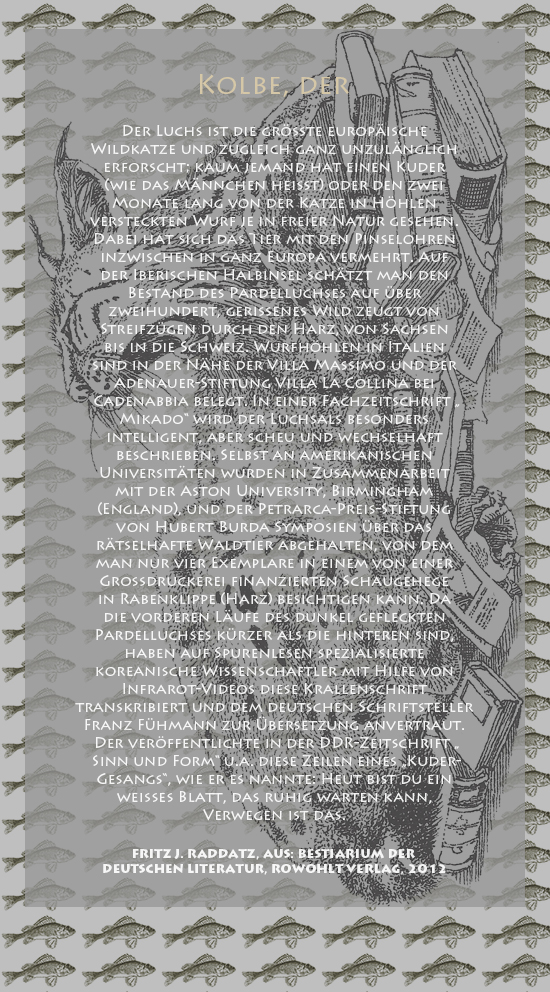 Kolbe, der
Der Luchs ist die grösste europäische
Wildkatze und zugleich ganz unzulänglich
erforscht; kaum jemand hat einen Kuder
(wie das Männchen heisst) oder den zwei
Monate lang von der Katze in Höhlen
versteckten Wurf je in freier Natur gesehen.
Dabei hat sich das Tier mit den Pinselohren
inzwischen in ganz Europa vermehrt. Auf
der Iberischen Halbinsel schätzt man den
Bestand des Pardelluchses auf über
zweihundert, gerissenes Wild zeugt von
Streifzügen durch den Harz, von Sachsen
bis in die Schweiz. Wurfhöhlen in Italien
sind in der Nähe der Villa Massimo und der
Adenauer-Stiftung Villa La Collina bei
Cadenabbia belegt. In einer Fachzeitschrift „
Mikado“ wird der Luchsals besonders
intelligent, aber scheu und wechselhaft
beschrieben. Selbst an amerikanischen
Universitäten wurden in Zusammenarbeit
mit der Aston University, Birmingham
(England), und der Petrarca-Preis-Stiftung
von Hubert Burda Symposien über das
rätselhafte Waldtier abgehalten, von dem
man nur vier Exemplare in einem von einer
Grossdruckerei finanzierten Schaugehege
in Rabenklippe (Harz) besichtigen kann. Da
die vorderen Läufe des dunkel gefleckten
Pardelluchses kürzer als die hinteren sind,
haben auf Spurenlesen spezialisierte
koreanische Wissenschaftler mit Hilfe von
Infrarot-Videos diese Krallenschrift
transkribiert und dem deutschen Schriftsteller
Franz Fühmann zur Übersetzung anvertraut.
Der veröffentlichte in der DDR-Zeitschrift „
Sinn und Form“ u.a. diese Zeilen eines „Kuder-
Gesangs“, wie er es nannte: Heut bist du ein
weisses Blatt, das ruhig warten kann,
Verwegen ist das.
Fritz J. Raddatz, aus: Bestiarium der
deutschen Literatur, Rowohlt Verlag, 2012